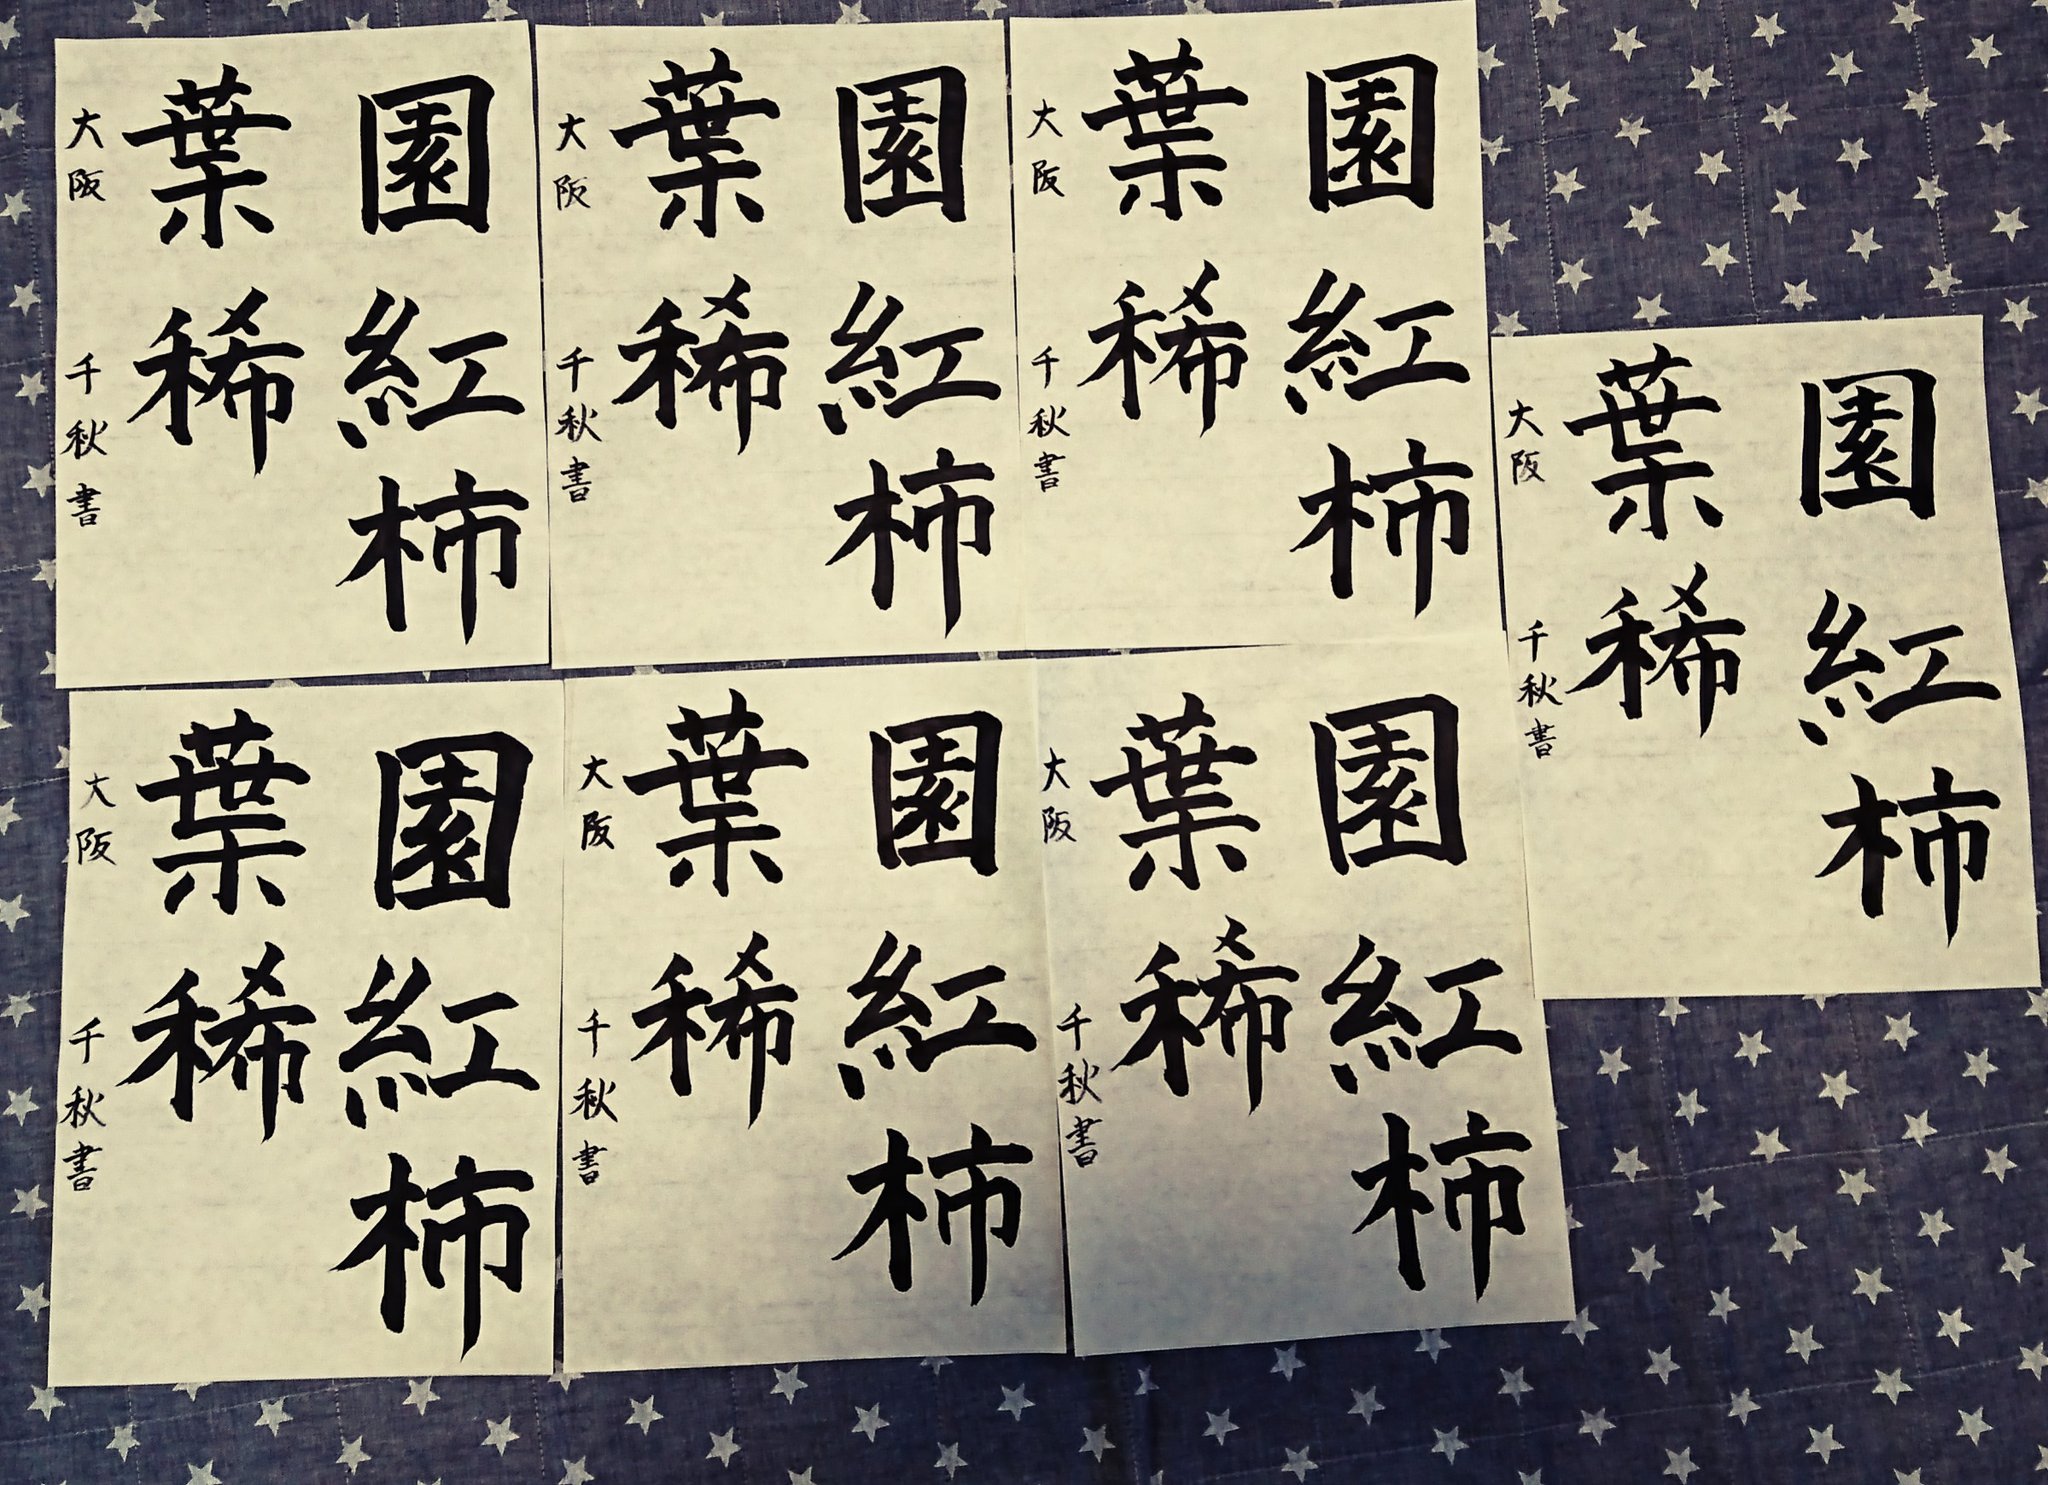 園紅柿
葉稀
大阪 千秋書
園紅柿
葉稀
大阪 千秋書
園紅柿
葉稀
大阪 千秋書
園紅柿
葉稀
大阪 千秋書
園紅柿
葉稀
大阪 千秋書
園紅柿
葉稀
大阪 千秋書
園紅柿
葉稀
大阪 千秋書